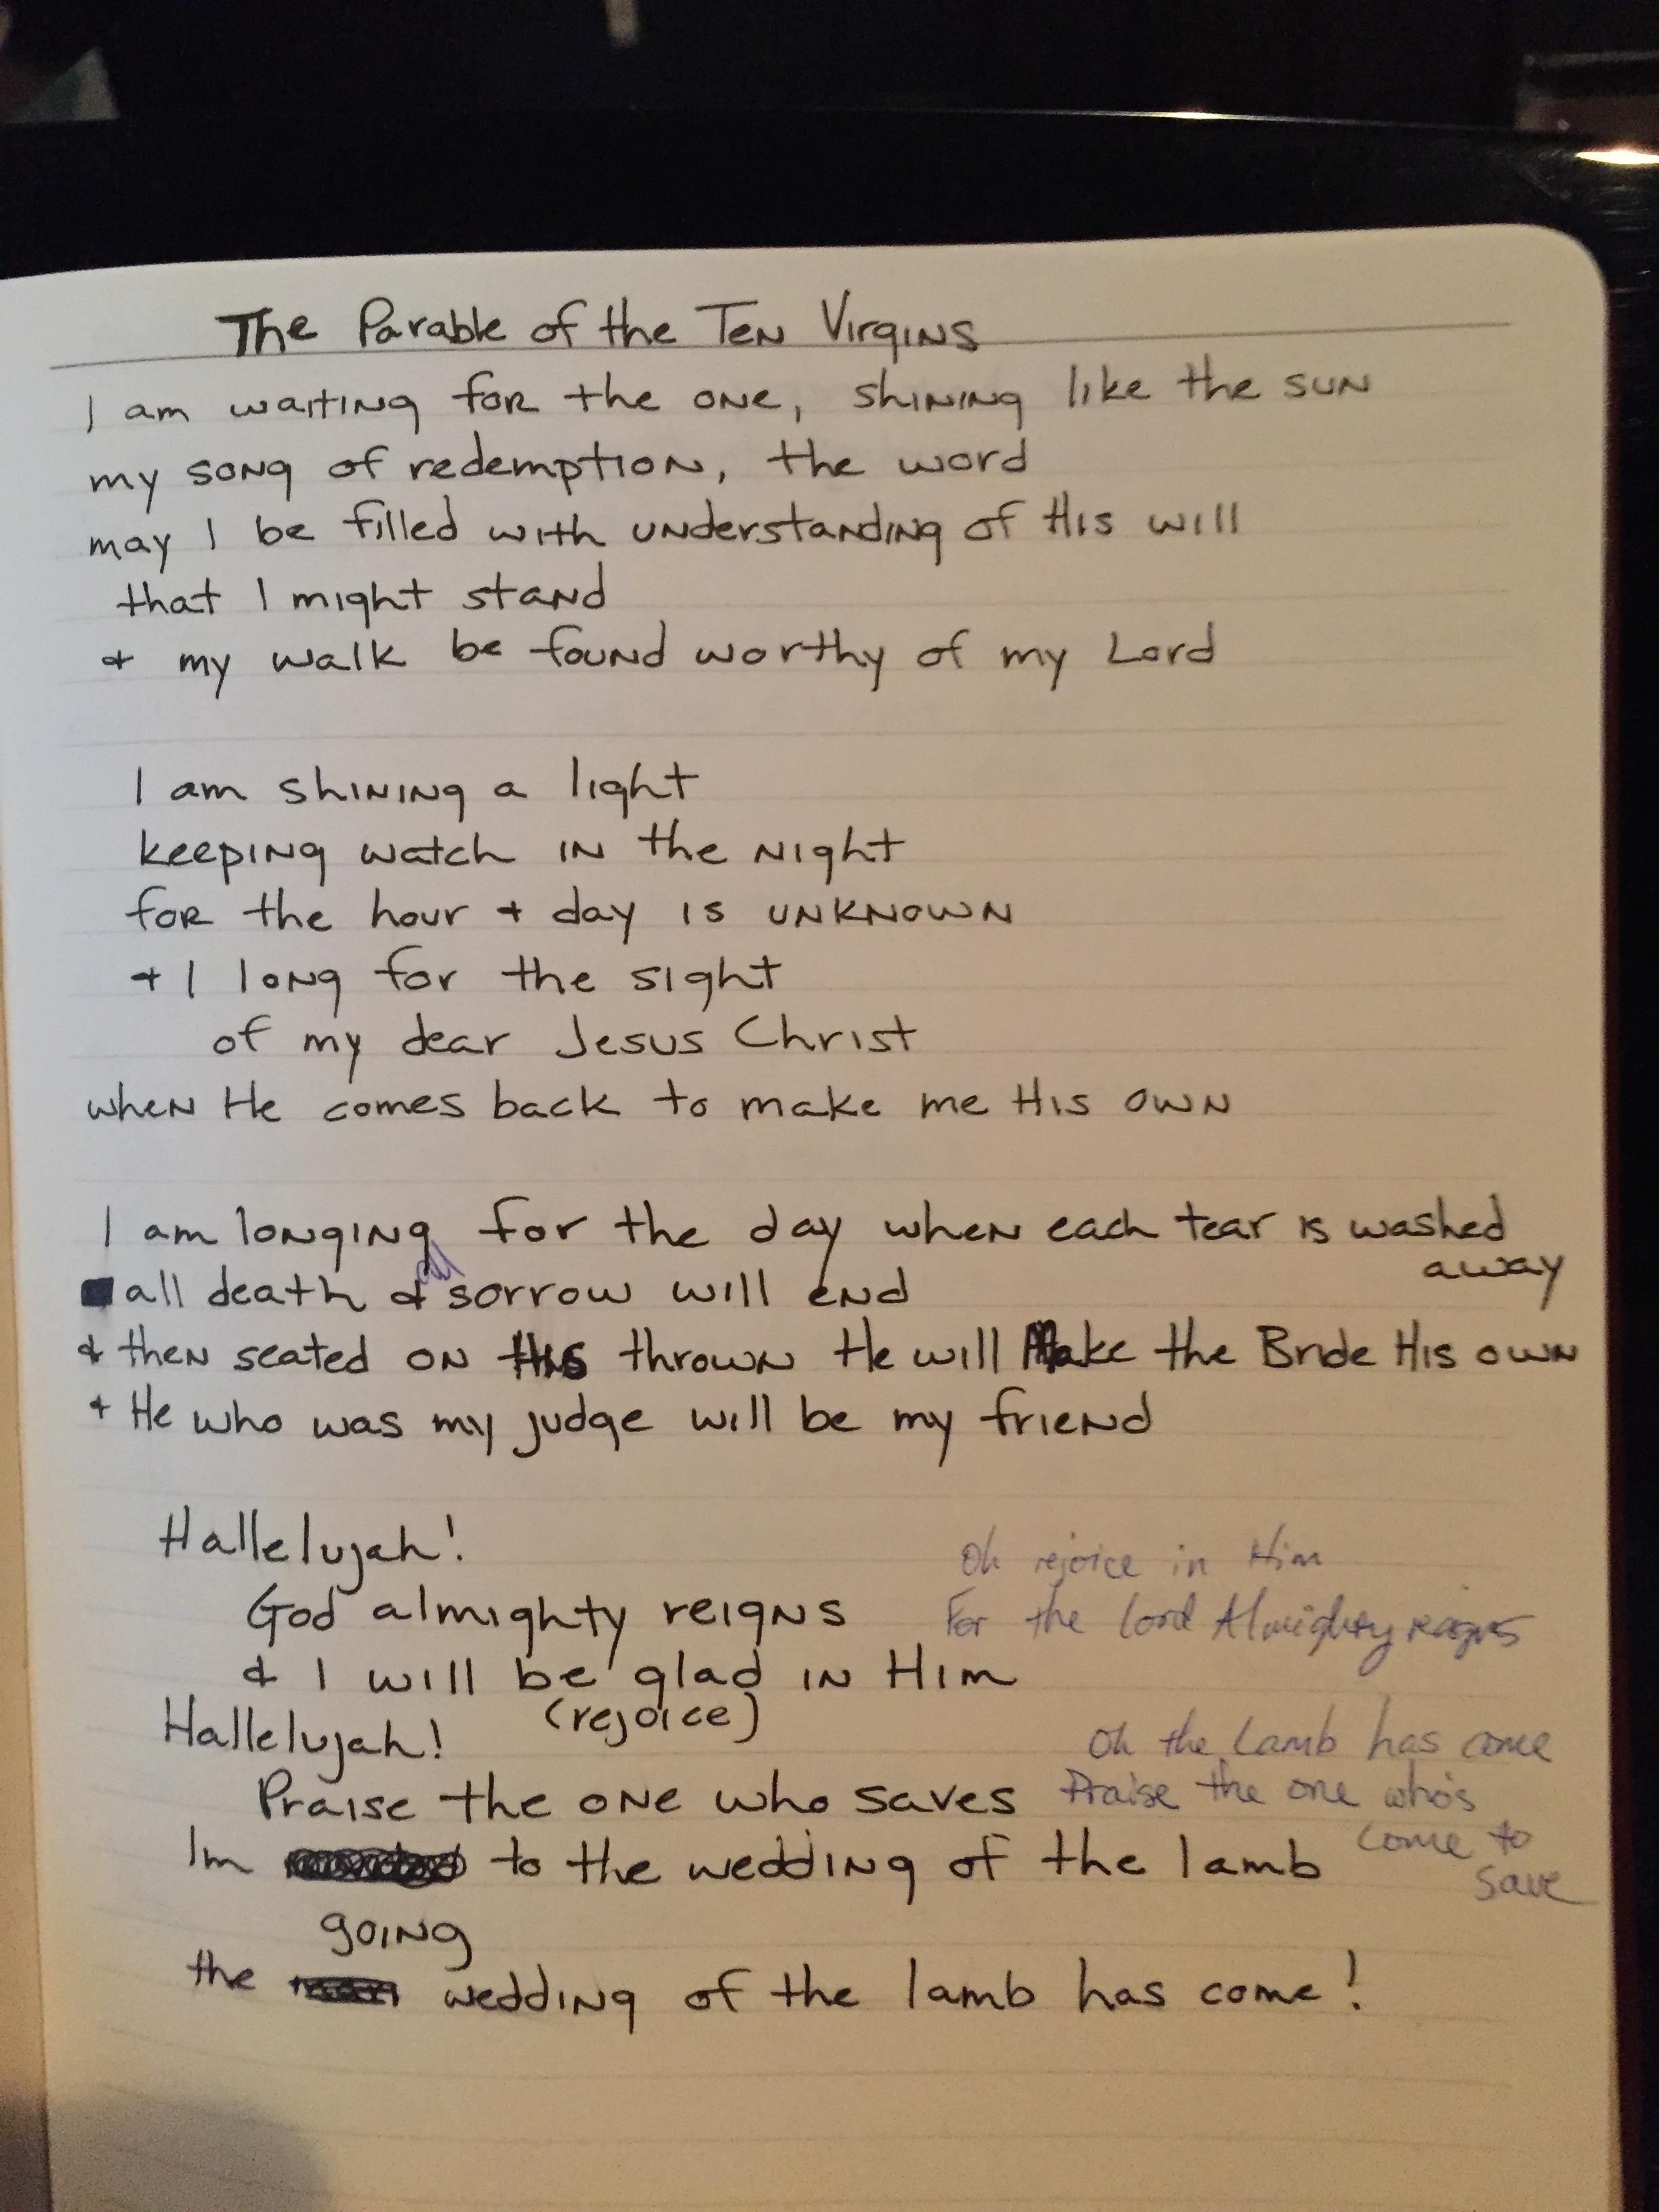 The Parable of the Ten Virgins
I am waiting for the one, shining like the sun
my song of redemption, the word
may I be filled with understanding of His will
that I might stand
& my walk be found worthy of my Lord
I am shining a light
keeping watch in the night
for the hour & day is unknown
& I long for the sight
of my dear Jesus Christ
when He comes back to make me His own
I am longing for the day when each tear is washed
away
all death & all sorrow will end
& then seated on His thrown He will Make the Bride His own
& He who was my judge will be my friend
Hallelujah!
Oh rejoice in Him
God almighty reigns
For the Lord Almighty reigns
& I will be glad in Him
(rejoice)
Hallelujah!
Oh the Lamb has come
Praise the one who saves
Praise the one who's
come to
save
Im to the wedding of the lamb
going
the wedding of the lamb has come!